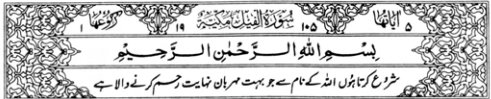 اٰیَاتُهَا ۵ ۱۰۵ سُوْرَةُ الْفِیْلِ مَكِّیَّةٌ ۱۹ رُكُوْعُهَا ۱
بِسْمِ اللّٰهِ الرَّحْمٰنِ الرَّحِیْمِ
شروع کرتا ہوں اللہ کے نام سے جو بہت مہربان نہایت رحم کرنے والا ہے